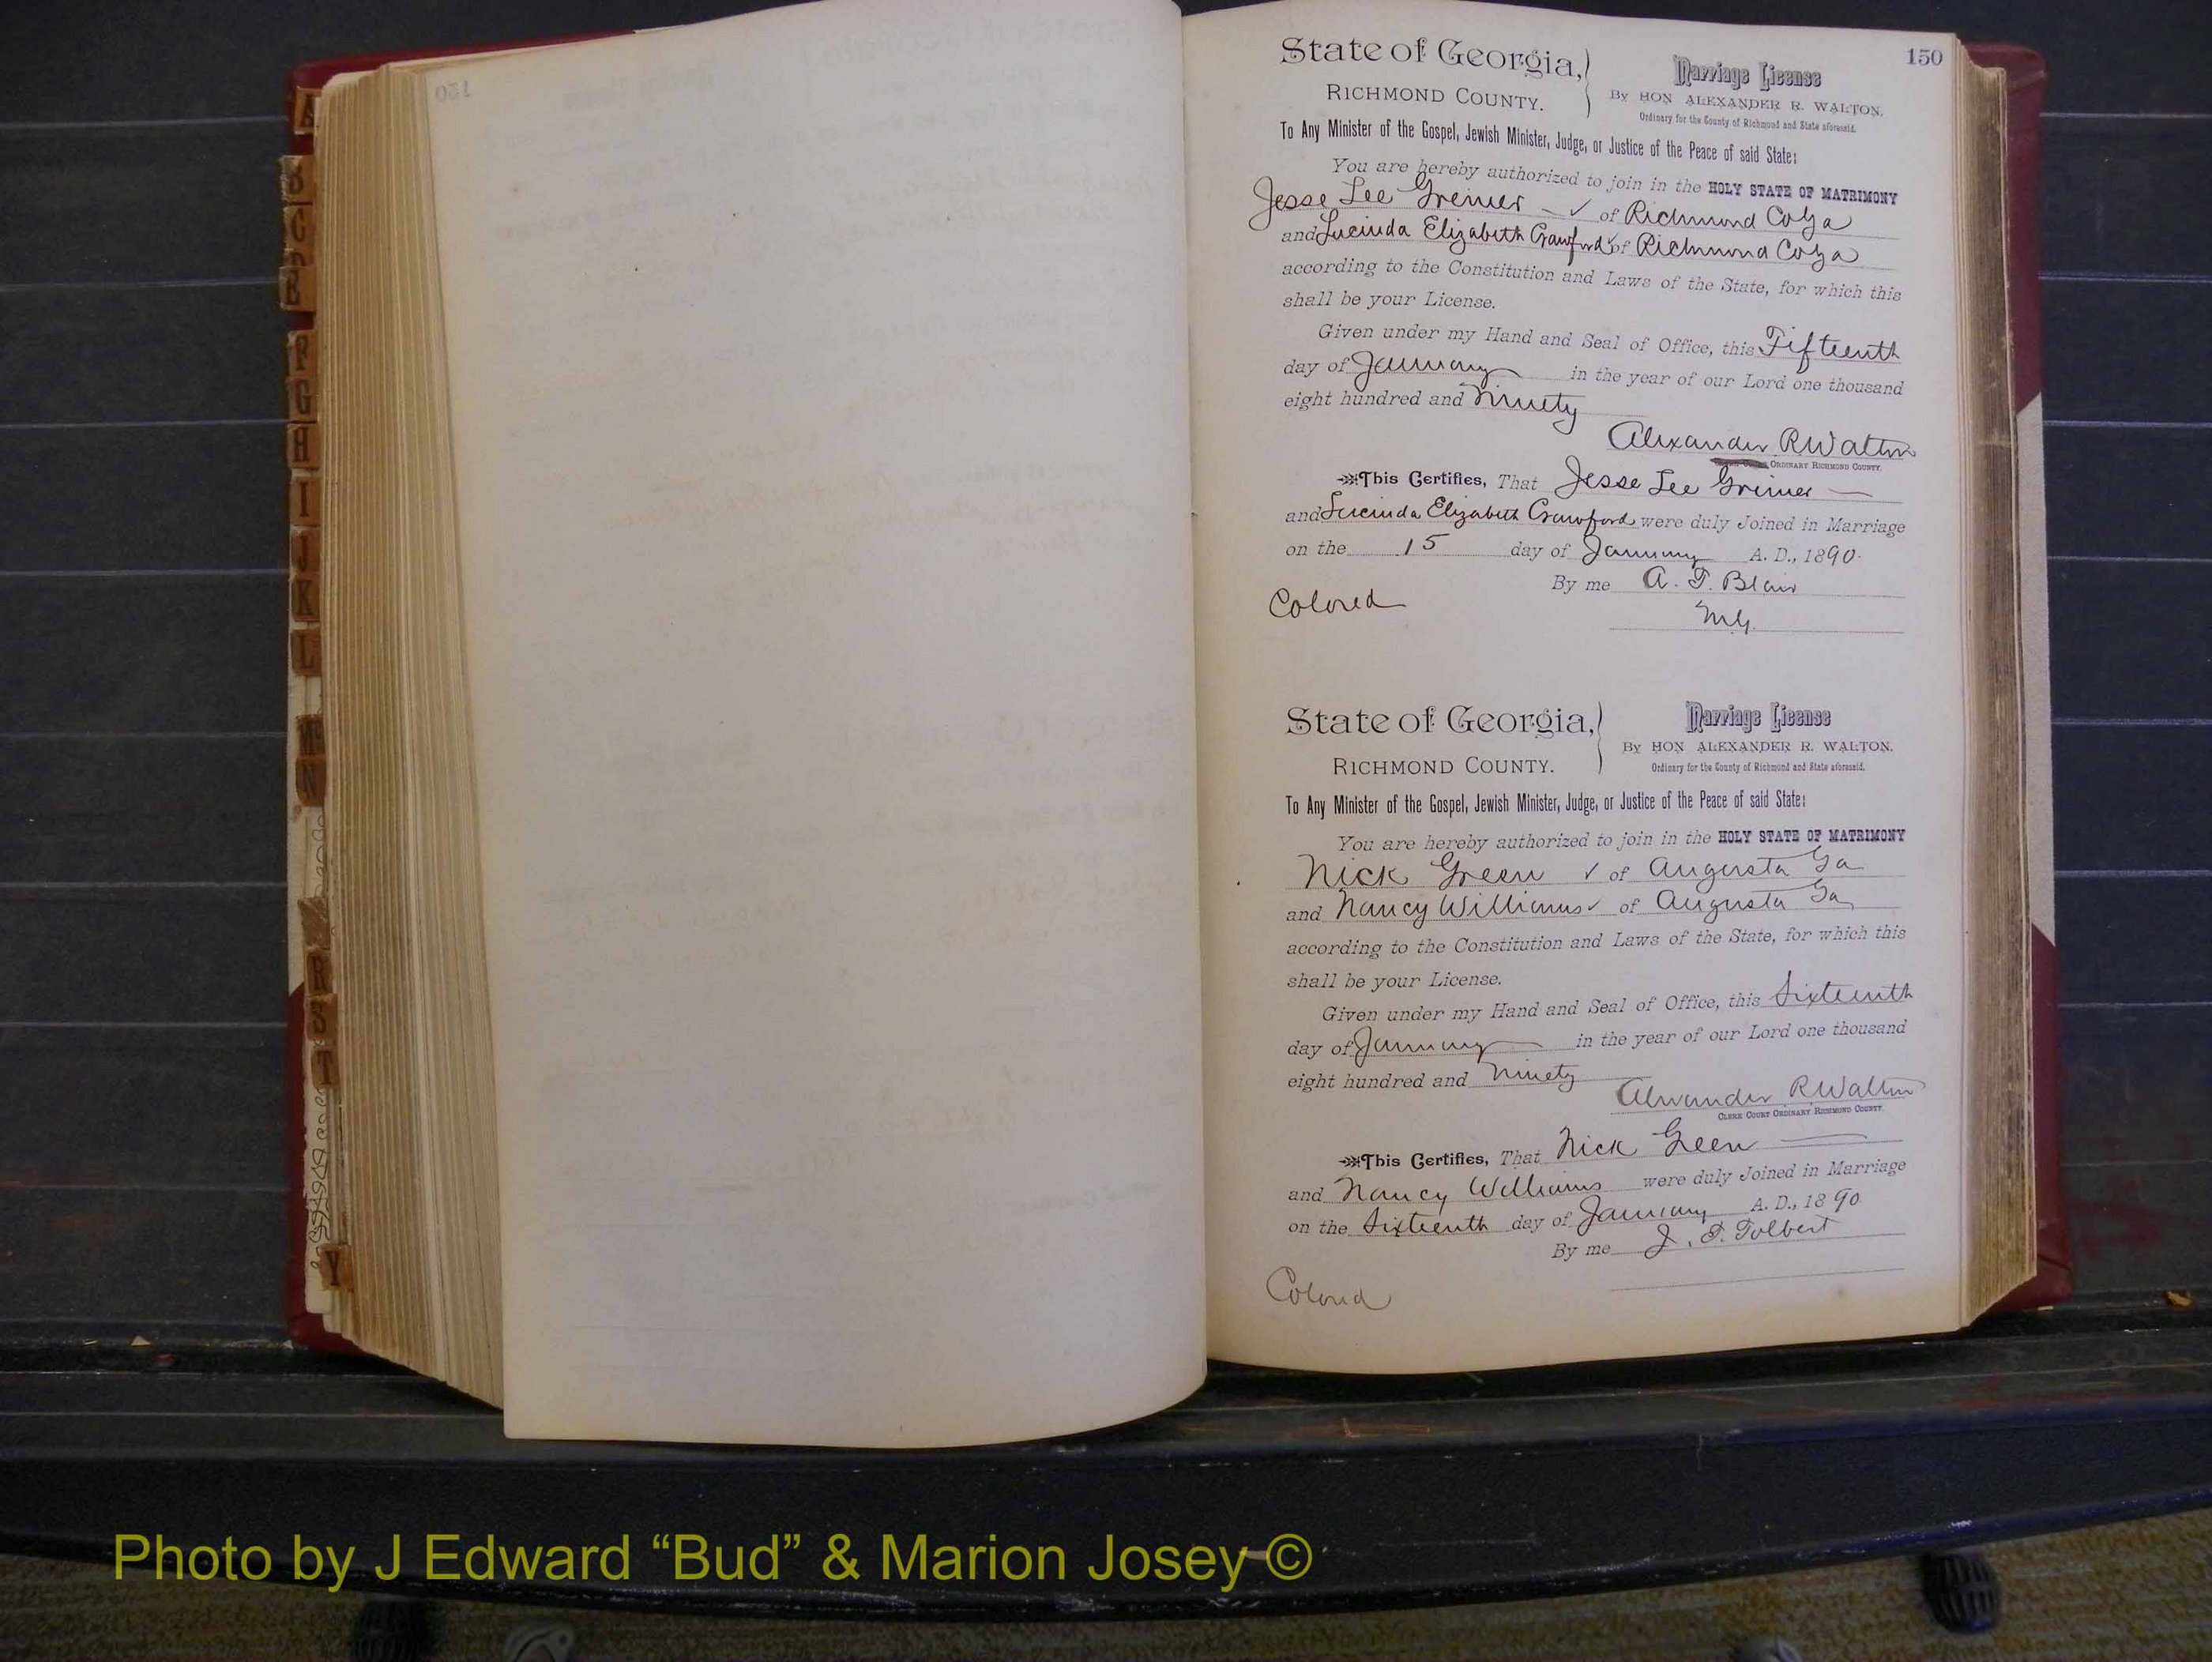 150
State of Georgia,
RICHMOND COUNTY.
Marriage License
By HON ALEXANDER R. WALTON,
Ordinary for the County of Richmond and State aforesaid.
To Any Minister of the Gospel, Jewish Minister, Judge, or Justice of the Peace of said State:
You are hereby authorized to join in the HOLY STATE OF MATRIMONY
Jesse Lee Greiner of Richmond Co Ga
and Lucinda Elizabeth Crawford of Richmond Co Ga
according to the Constitution and Laws of the State, for which this
shall be your License.
Given under my Hand and Seal of Office, this Fifteenth
day of January in the year of our Lord one thousand
eight hundred and Ninety
Alexander R Walton
ORDINARY RICHMOND COUNTY.
This Certifies, That Jesse Lee Greiner
and Lucinda Elizabeth Crawford were duly Joined in Marriage
on the 15 day of January A. D., 1890.
By me A. T. Blair
M.G.
Colored
State of Georgia,
RICHMOND COUNTY.
Marriage License
By HON ALEXANDER R. WALTON,
Ordinary for the County of Richmond and State aforesaid.
To Any Minister of the Gospel, Jewish Minister, Judge, or Justice of the Peace of said State:
You are hereby authorized to join in the HOLY STATE OF MATRIMONY
Nick Green of Augusta Ga
and Nancy Williams of Augusta Ga
according to the Constitution and Laws of the State, for which this
shall be your License.
Given under my Hand and Seal of Office, this Sixteenth
day of January in the year of our Lord one thousand
eight hundred and Ninety
Alexander R Walton
CLERK COURT ORDINARY RICHMOND COUNTY.
This Certifies, That Nick Green
and Nancy Williams were duly Joined in Marriage
on the Sixteenth day of January A. D., 1890
By me J. T. Tolbert
Colored
A
B
C
F
G
H
I
J
K
L
Mc
N
R
S
T
Y
Photo by J Edward “Bud” & Marion Josey ©